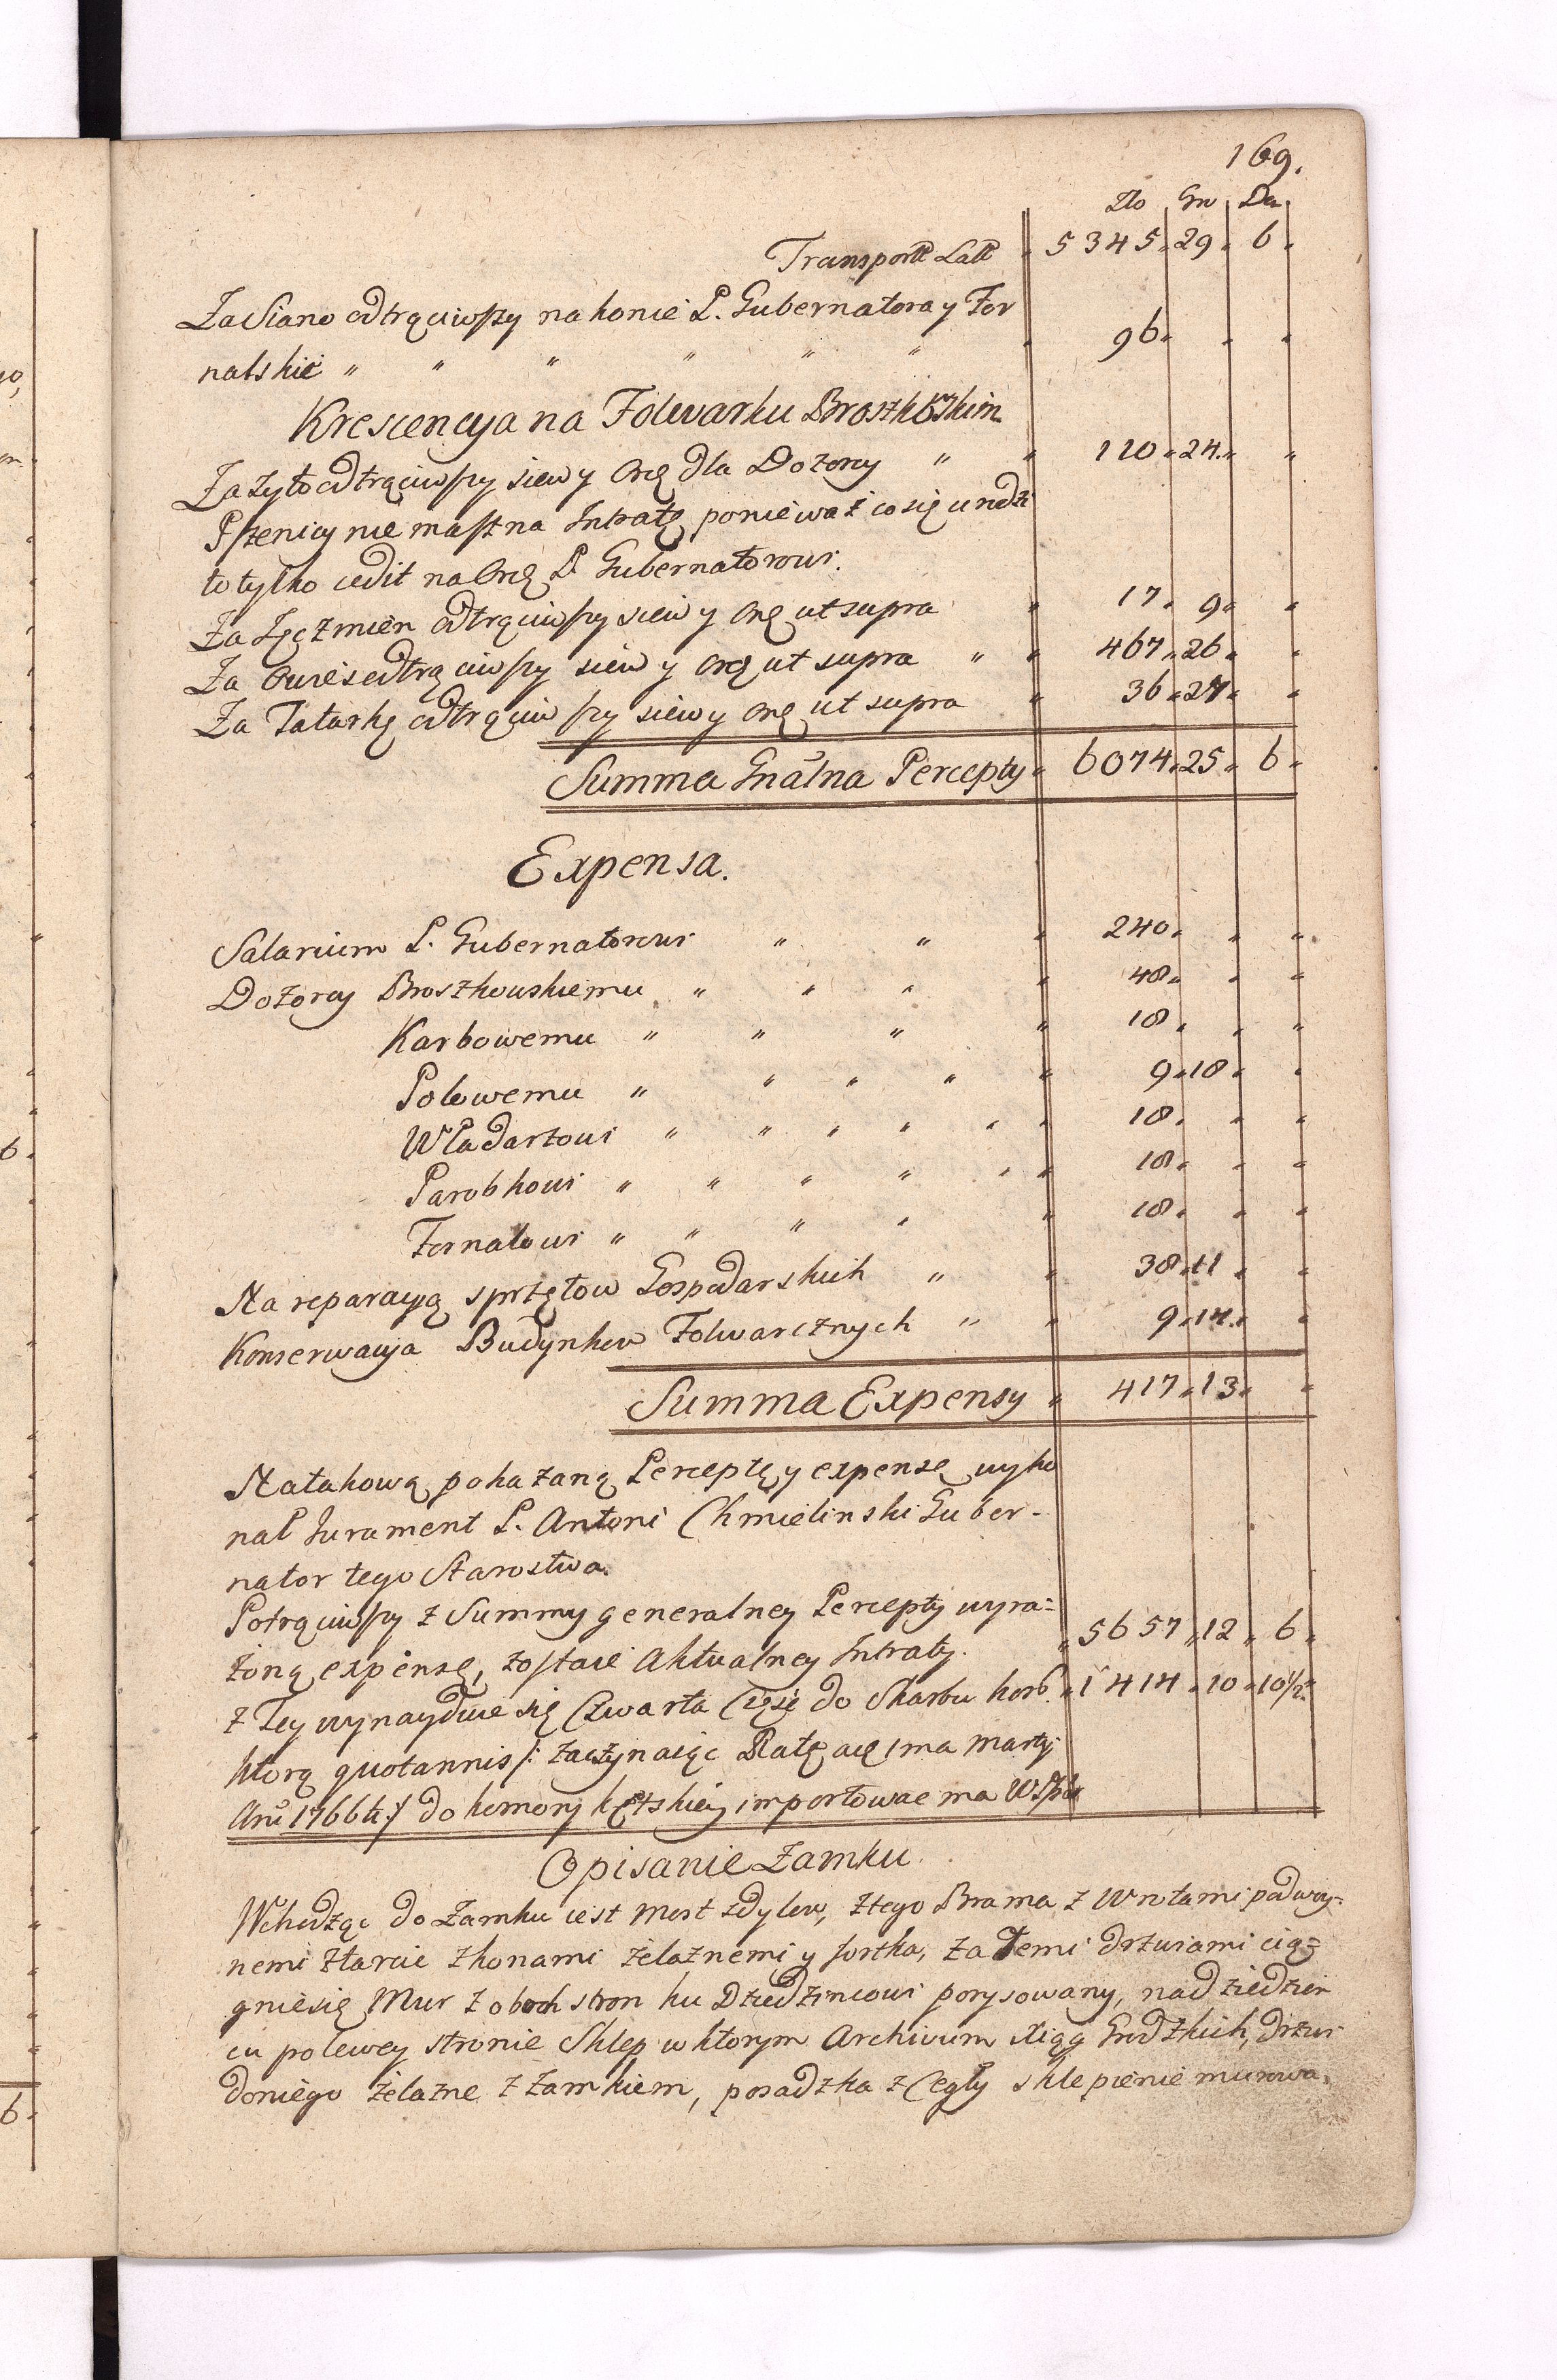 169.
Zło Gr Den.
Transportt Latt 5345 „ 29 „ 6 „
Za Siano odtrąciwszy na konie P. Gubernatora y For
nalskie „ „ „ „ „ „ 96 „ „ „
Krescencya na Folwarku Broszkowskim
Za żyto odtrąciwszy siew y Ord. dla Dozorcy „ „ 110 „ 24 „ „
Pszenicy nie masz na Intratę ponieważ co się urodzi
to tylko cedit na Ord. P. Gubernatorowi.
Za Jęczmień odtrąciwszy siew y Ord. ut supra „ 17 „ 9 „ „
Za Owies odtrąciwszy siew y Ord. ut supra „ „ 467 „ 26 „ „
Za Tatarkę odtrąciwszy siew y Ord. ut supra „ 36 „ 27 „ „
Summa Gnãlna Percepty „ 6074 „ 25 „ 6 „
Expensa.
Salarium P. Gubernatorowi „ „ „ 240 „ „ „
Dozorcy Broszkowskiemu „ „ „ „ 48 „ „ „
Karbowemu „ „ „ „ 18 „ „ „
Polowemu „ „ „ „ „ 9 „ 18 „ „
Władarzowi „ „ „ „ „ „ 18 „ „ „
Parobkowi „ „ „ „ „ „ 18 „ „ „
Fornalowi „ „ „ „ „ 18 „ „ „
Na reparacyą sprzętow Gospodarskich „ „ 38 „ 11 „ „
Konserwacya Budynkow Folwarcznych „ „ 9 „ 14 „ „
Summa Expensy „ 417 „ 13 „ „
Na takową pokazaną Perceptę y expensę wyko
nał Jurament P. Antoni Chmielinski Guber-
nator tego Starostwa.
Potrąciwszy z Summy generalney Percepty wyra=
żoną expensę, zostaie Aktualney Intraty. „ 5657 „ 12 „ 6 „
z Tey wynayduie się Czwarta Część do Skarbu Kor. „ 1414 „ 10 „ 10 1/2 „
ktorą quotannis /: zaczynaiąc Ratę a 1ma Martij
Anñ 1766ti :/ do komory importować ma
Opisanie Zamku.
Wchodząc do Zamku iest Most z dylow, z tego Brama z Wrotami podwoy=
nemi z tarcic z konami żelaznemi y fortka, za temi drzwiami cią=
gnie się Mur z oboch stron ku Dziedzincowi porysowany, na dziedzin
cu po lewey stronie Sklep w ktorym Archivum Xiąg Grodzkich, drzwi
do niego żelazne z zamkiem, posadzka z Cegły sklepienie murowa,